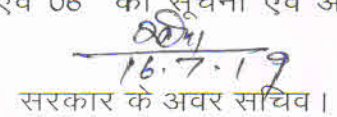 एवं 08 की सूचना एवं अ
16.7.19
सरकार के अवर सचिव।